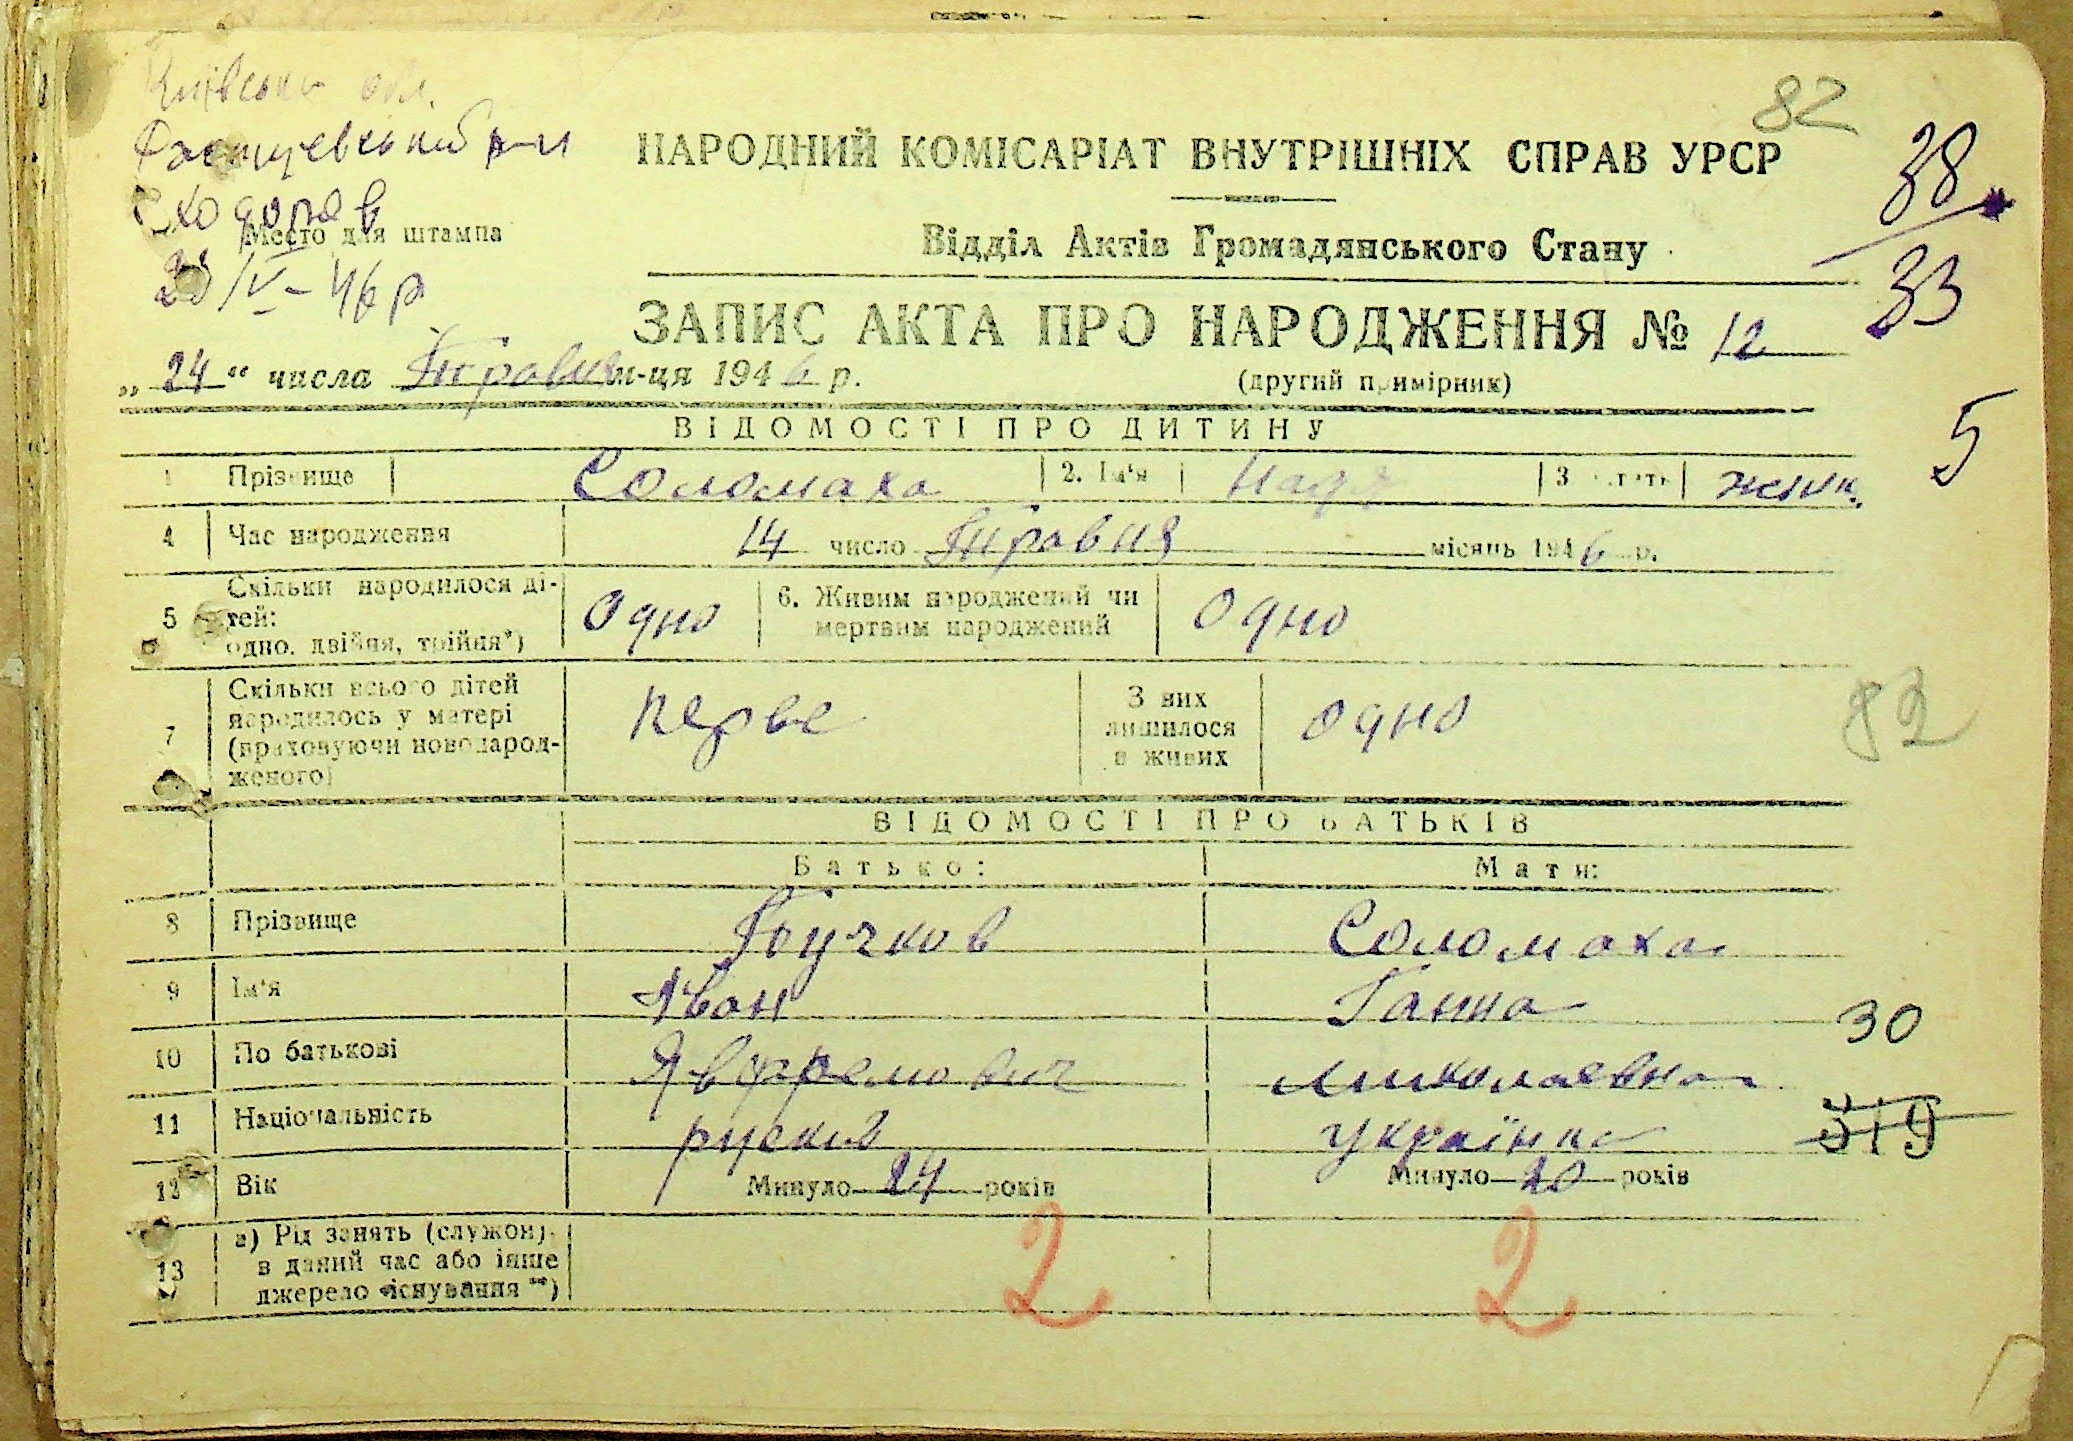 82
Київська обл.
Фастівський р-н
НАРОДНИЙ КОМІСАРІАТ ВНУТРІШНІХ СПРАВ УРСР
38
Место для штампа
Відділ Актів Громадянського Стану
33
ЗАПИС АКТА ПРО НАРОДЖЕННЯ № 12
„ 24 “ числа Травня м-ця 1946 р.
(другий примірник)
ВІДОМОСТІ ПРО ДИТИНУ
5
1 Прізвище Соломаха 2. Ім'я Надя 3 жіноч.
4 Час народження 14 число Травня місяць 1946 р.
5 Скільки народилося ді-
тей:
одно, двійня, трійня*)
Одно
6. Живим народжений чи
мертвим народжений
Одно
7 Скільки всього дітей
народилось у матері
(враховуючи новонарод-
женого)
перве
З них
лишилося
в живих
одно
82
ВІДОМОСТІ ПРО БАТЬКІВ
Батько: Мати:
8 Прізвище Бучков Соломаха
9 Ім'я Іван Ганна
30
10 По батькові Явфремович Миколаевна
11 Національність руский українка
319
12 Вік Минуло 24 років Минуло 20 років
13 а) Рід занять (служби).
в даний час або інше
джерело існування **)
2 2